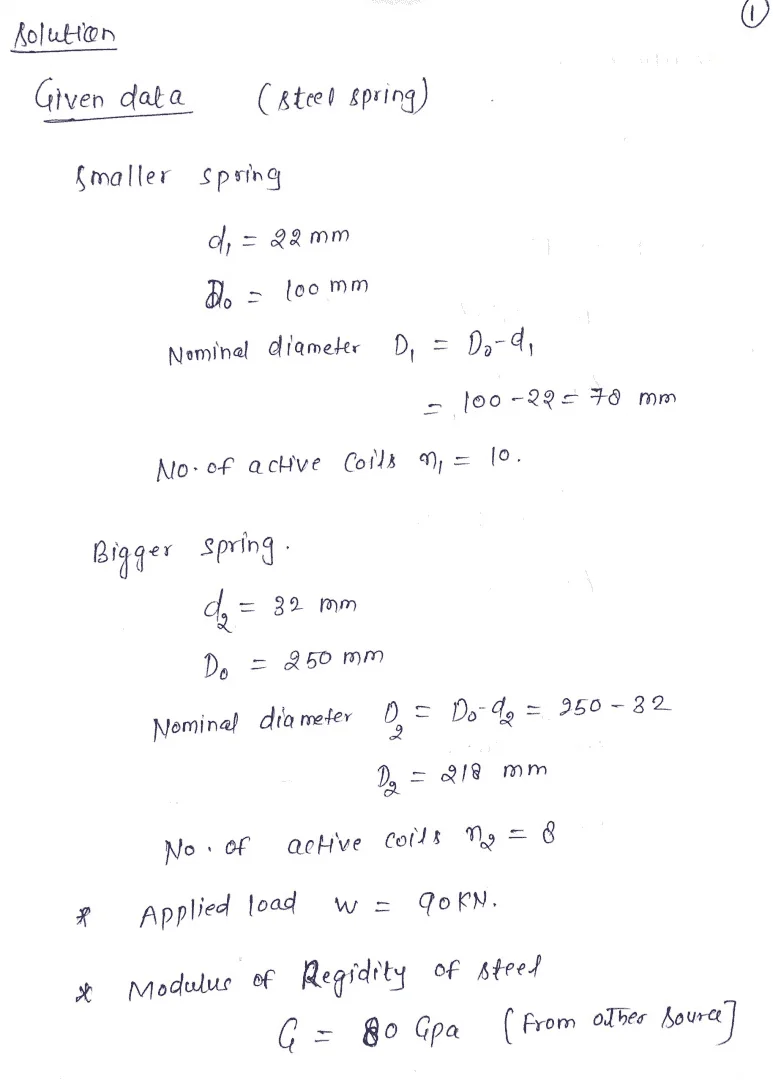 ①
Solution
Given data (steel spring)
Smaller spring
d₁ = 22 mm
D₀ = 100 mm
Nominal diameter D₁ = D₀-d₁
= 100-22 = 78 mm
No. of active coils n₁ = 10.
Bigger spring.
d₂ = 32 mm
D₀ = 250 mm
Nominal diameter D₂ = D₀-d₂ = 250-32
D₂ = 218 mm
No. of active coils n₂ = 8
* Applied load W = 90 KN.
* Modulus of Regidity of steel
G = 80 Gpa [from other source]